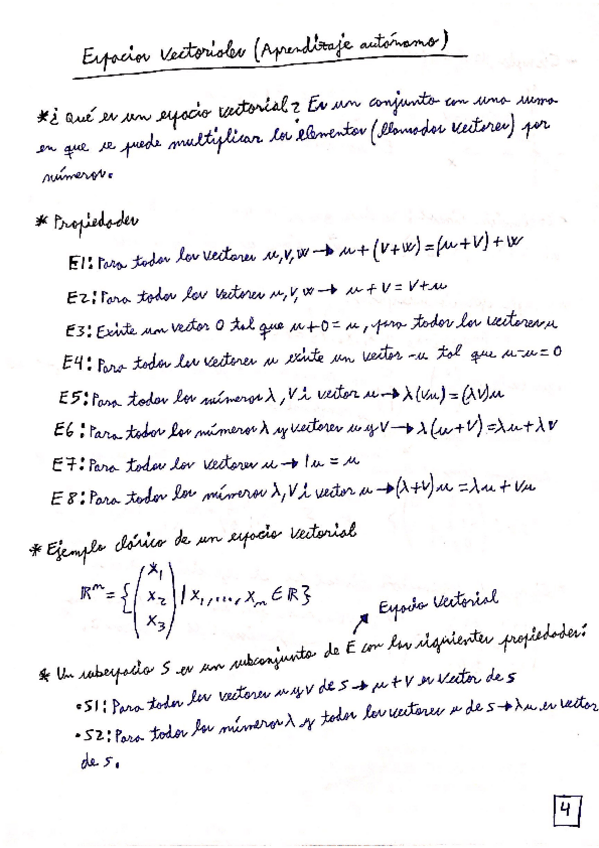 Espacios Vectoriales (Aprendizaje autónomo)
*¿Qué es un espacio vectorial? Es un conjunto con una suma
en que se puede multiplicar los elementos (llamados vectores) por
números.
* Propiedades
E1: Para todos los vectores u,v,w → u+(v+w)=(u+v)+w
E2: Para todos los vectores u,v,w → u+v=v+u
E3: Existe un vector 0 tal que u+0=u, para todos los vectores u
E4: Para todos los vectores u existe un vector -u tal que u-u=0
E5: Para todos los números λ,V i vector u → λ(vu)=(λv)u
E6: Para todos los números λ y vectores u y V → λ(u+v)=λu+λv
E7: Para todos los vectores u → 1u=u
E8: Para todos los números λ,V i vector u → (λ+v)u=λu+vu
* Ejemplo clásico de un espacio vectorial
ℝᵐ={(x₁ x₂ x₃) | x₁,...,xₘ ∈ ℝ}
Espacio Vectorial
* Un subespacio S es un subconjunto de E con las siguientes propiedades:
•S1: Para todos los vectores u y v de S → u+v es vector de S
•S2: Para todos los números λ y todos los vectores u de S → λu es vector
de S.
4